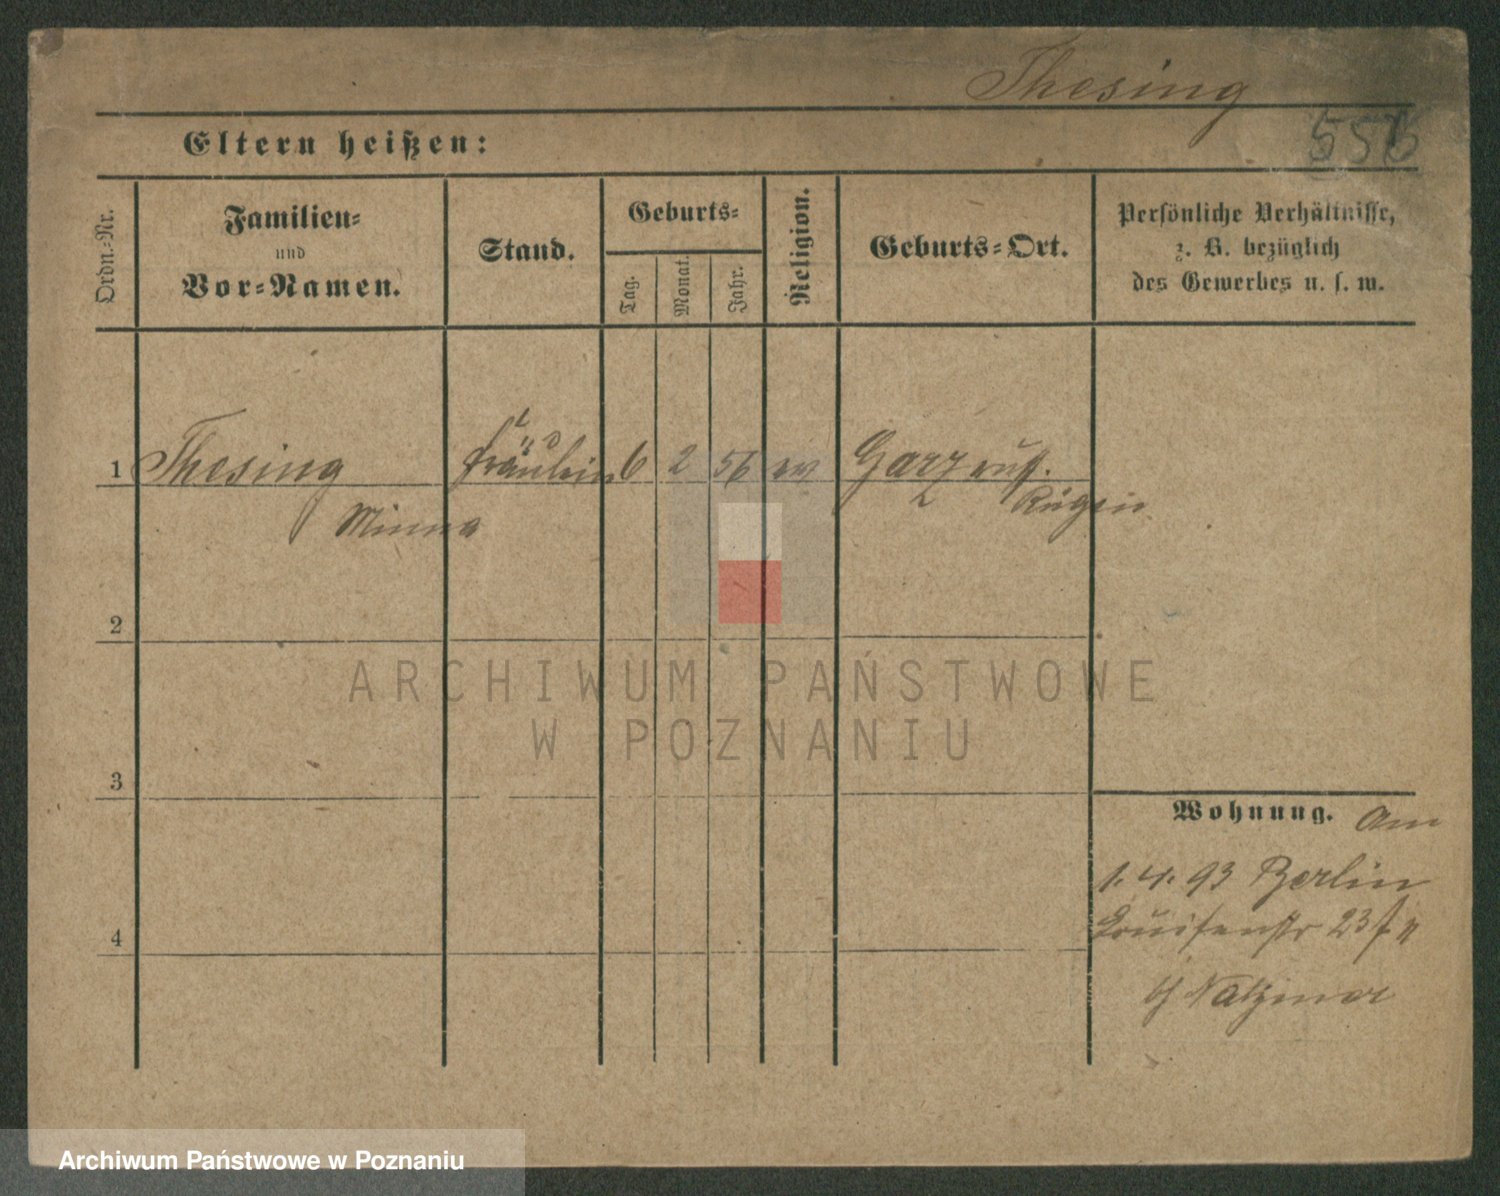 Thesing
556
Eltern heißen:
Ordn.-Nr.
Familien-
und
Vor-Namen.
Stand.
Geburts-
Tag.
Monat.
Jahr.
Religion.
Geburts-Ort.
Persönliche Verhältnisse,
z. B. bezüglich
des Gewerbes u. s. w.
1 Thesing Fräulein 6 2 56 ev Garz auf
Minna Rügen
2
3
Wohnung. Am
1.4.93 Berlin
Louisenstr 23
4
Natzmer
ARCHIWUM PAŃSTWOWE
W POZNANIU
Archiwum Państwowe w Poznaniu